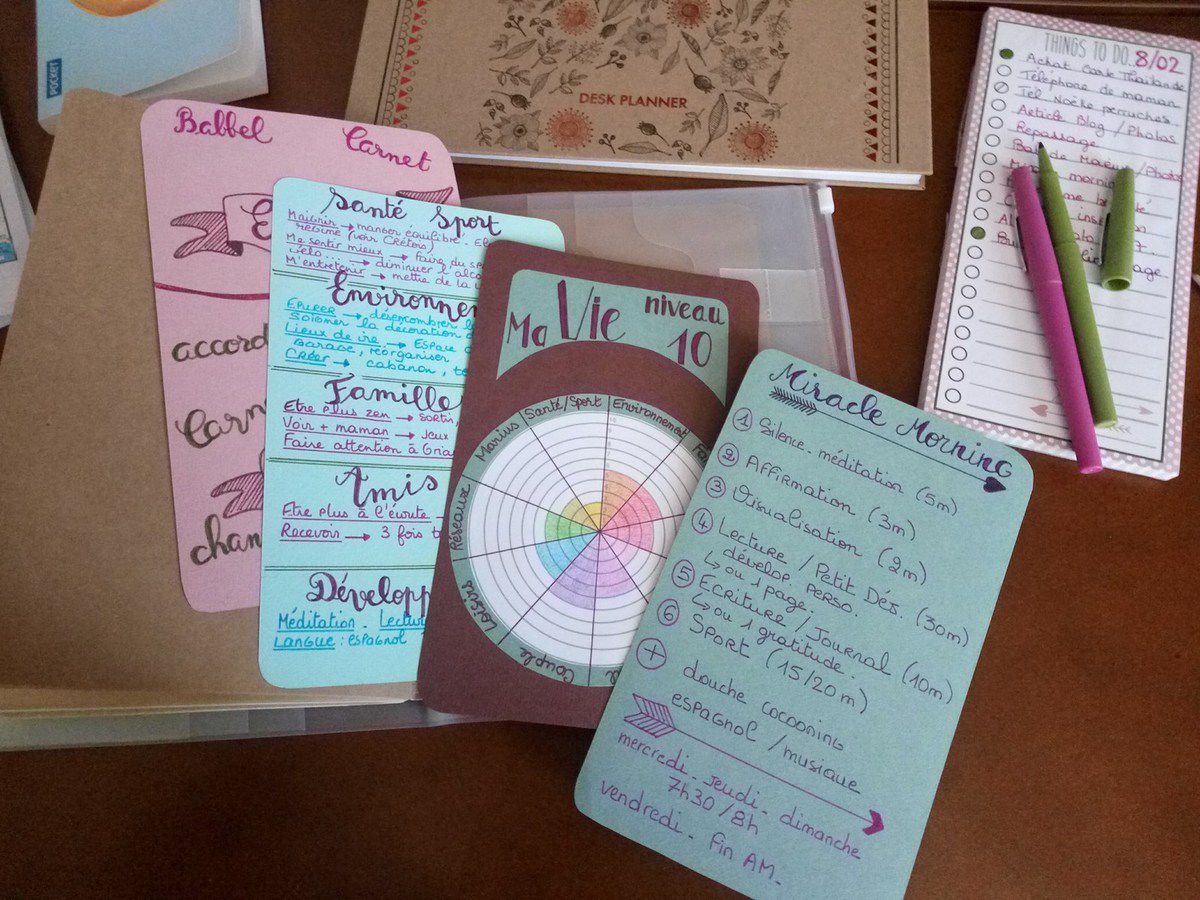 POCKET
DESK PLANNER
THINGS TO DO
8/02
Achat Carte Thaïlande
Téléphone de maman
Tel. Noëlie perruches
Article Blog / Photos
Repassage
Babbel
Carnet
accord
Carn
chan
Santé Sport
Maigrir → manger équilibré.
régime (voir Crétois)
Me sentir mieux → faire du
Vélo... → diminuer l'alco
M'entretenir → mettre de la
Environne
Epurer → désencombrer
Soigner la décoration
Lieux de vie → Espace
Garage, réorganiser
Créer → cabanon,
Famille
Etre plus zen → sortir,
Voir + maman → jeux
Faire attention à Gra
Amis
Etre plus à l'écoute
Recevoir → 3 fois
Développ
Méditation. Lectu
Langue : espagnol
Ma Vie niveau 10
Santé/Sport
Environnement
Fa
Marius
Réseaux
Loisirs
Couple
Miracle Morning
1 Silence. méditation (5m)
2 Affirmation (3m)
3 Visualisation (2m)
4 Lecture / Petit Déj. (30m)
dévelop. perso.
↳ ou 1 page.
5 Ecriture / Journal (10m)
↳ ou 1 gratitude.
6 Sport (15/20m)
+ douche cocooning
espagnol / musique
mercredi. jeudi. dimanche
7h30/8h
vendredi. fin AM.